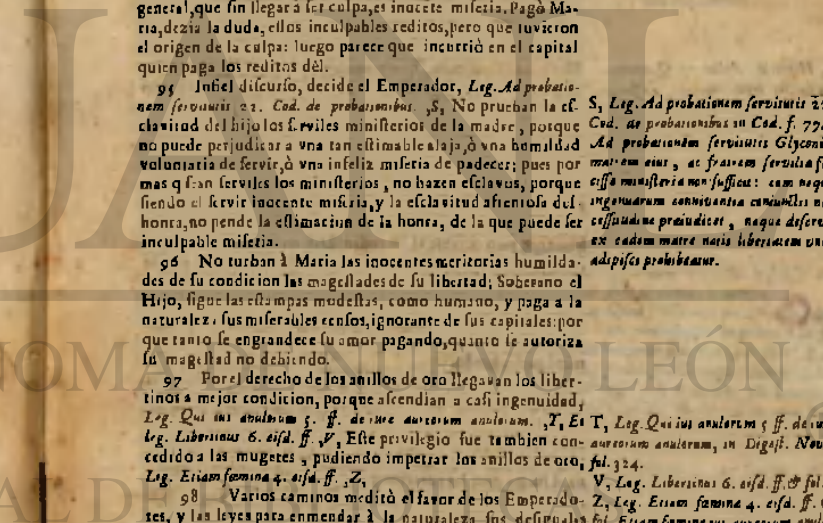 general, que sin llegar á ser culpa, es inocẽte miseria. Pagò Ma-
ria, dezia la duda, essos inculpables reditos, pero que tuvieron
el origen de la culpa: luego parece que incurriò en el capital
quien paga los reditos dèl.
95 Infiel discurso, decide el Emperador, Leg. Ad probatio-
nem servitutis 22. Cod. de probationibus. ,S, No prueban la es-
clavitud del hijo los serviles ministerios de la madre, porque
no puede perjudicar a vna tan estimable alaja, ò vna humildad
voluntaria de servir, ò vna infeliz miseria de padecer; pues por
mas q sean serviles los ministerios, no hazen esclavos, porque
siendo el servir inocente miseria, y la esclavitud afrentosa des-
honra, no pende la estimacion de la honra, de la que puede ser
inculpable miseria.
96 No turban à Maria las inocentes meritorias humilda-
des de su condicion las magestades de su libertad; Soberano el
Hijo, sigue las estampas modestas, como humano, y paga a la
naturaleza sus miserables censos, ignorante de sus capitales: por
que tanto se engrandece su amor pagando, quanto se autoriza
su magestad no debiendo.
97 Por el derecho de los anillos de oro llegavan los liber-
tinos a mejor condicion, porque ascendian a casi ingenuidad,
Leg. Qui ius anulorum 5. ff. de iure aureorum anulorum. ,T, Et
leg. Libertinus 6. eisd. ff. ,V, Este privilegio fue tambien con-
cedido a las mugeres, pudiendo impetrar los anillos de oro,
Leg. Etiam fœmina 4. eisd. ff. ,Z,
98 Varios caminos meditò el favor de los Emperado-
res, y las leyes para enmendar à la naturaleza sus desiguales
S, Leg. Ad probationem servitutis 22
Cod. de probationibus in Cod. f. 77
Ad probationem servitutis Glyconi
matrem eius, ac fratrem servilia
cisse ministeria non sufficit: cum neque
ingenuarum conniventia
præiudicet, neque
ex eadem matre natis libertatem
adipisci prohibeatur.
T, Leg. Qui ius anulorum 5 ff. de iu
aureorum anulorum, in Digest. Nov
fol. 324.
V, Leg. Libertinus 6. eisd. ff. & fol.
Z, Leg. Etiam fœmina 4. eisd. ff.
fol. Etiam fœmina ius aureorum